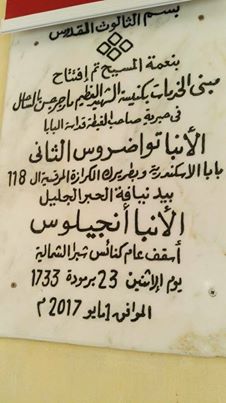 بسم الثالوث المقدس
بنعمة المسيح تم إفتتاح
مبنى الخدمات بكنيسة الشهيد العظيم مارجرجس بالشال
فى حبرية صاحب الغبطة قداسة البابا
الأنبا تواضروس الثانى
بابا الاسكندرية وبطريرك الكرازة المرقسية ال 118
بيد نيافة الحبر الجليل
الأنبا أنجيلوس
أسقف عام كنائس شبرا الشمالية
يوم الإثنين 23 برمودة 1733
الموافق 1 مايو 2017 م